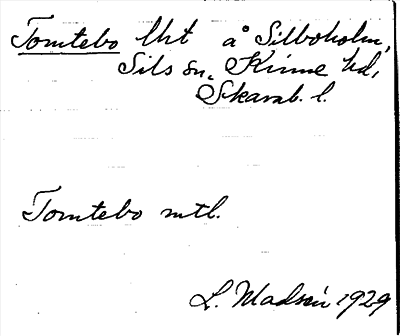 Tomtebo lht å Silboholm,
Sils sn, Kinne hd,
Skarab. l.
Tomtebo mtl.
L. Madsén 1929